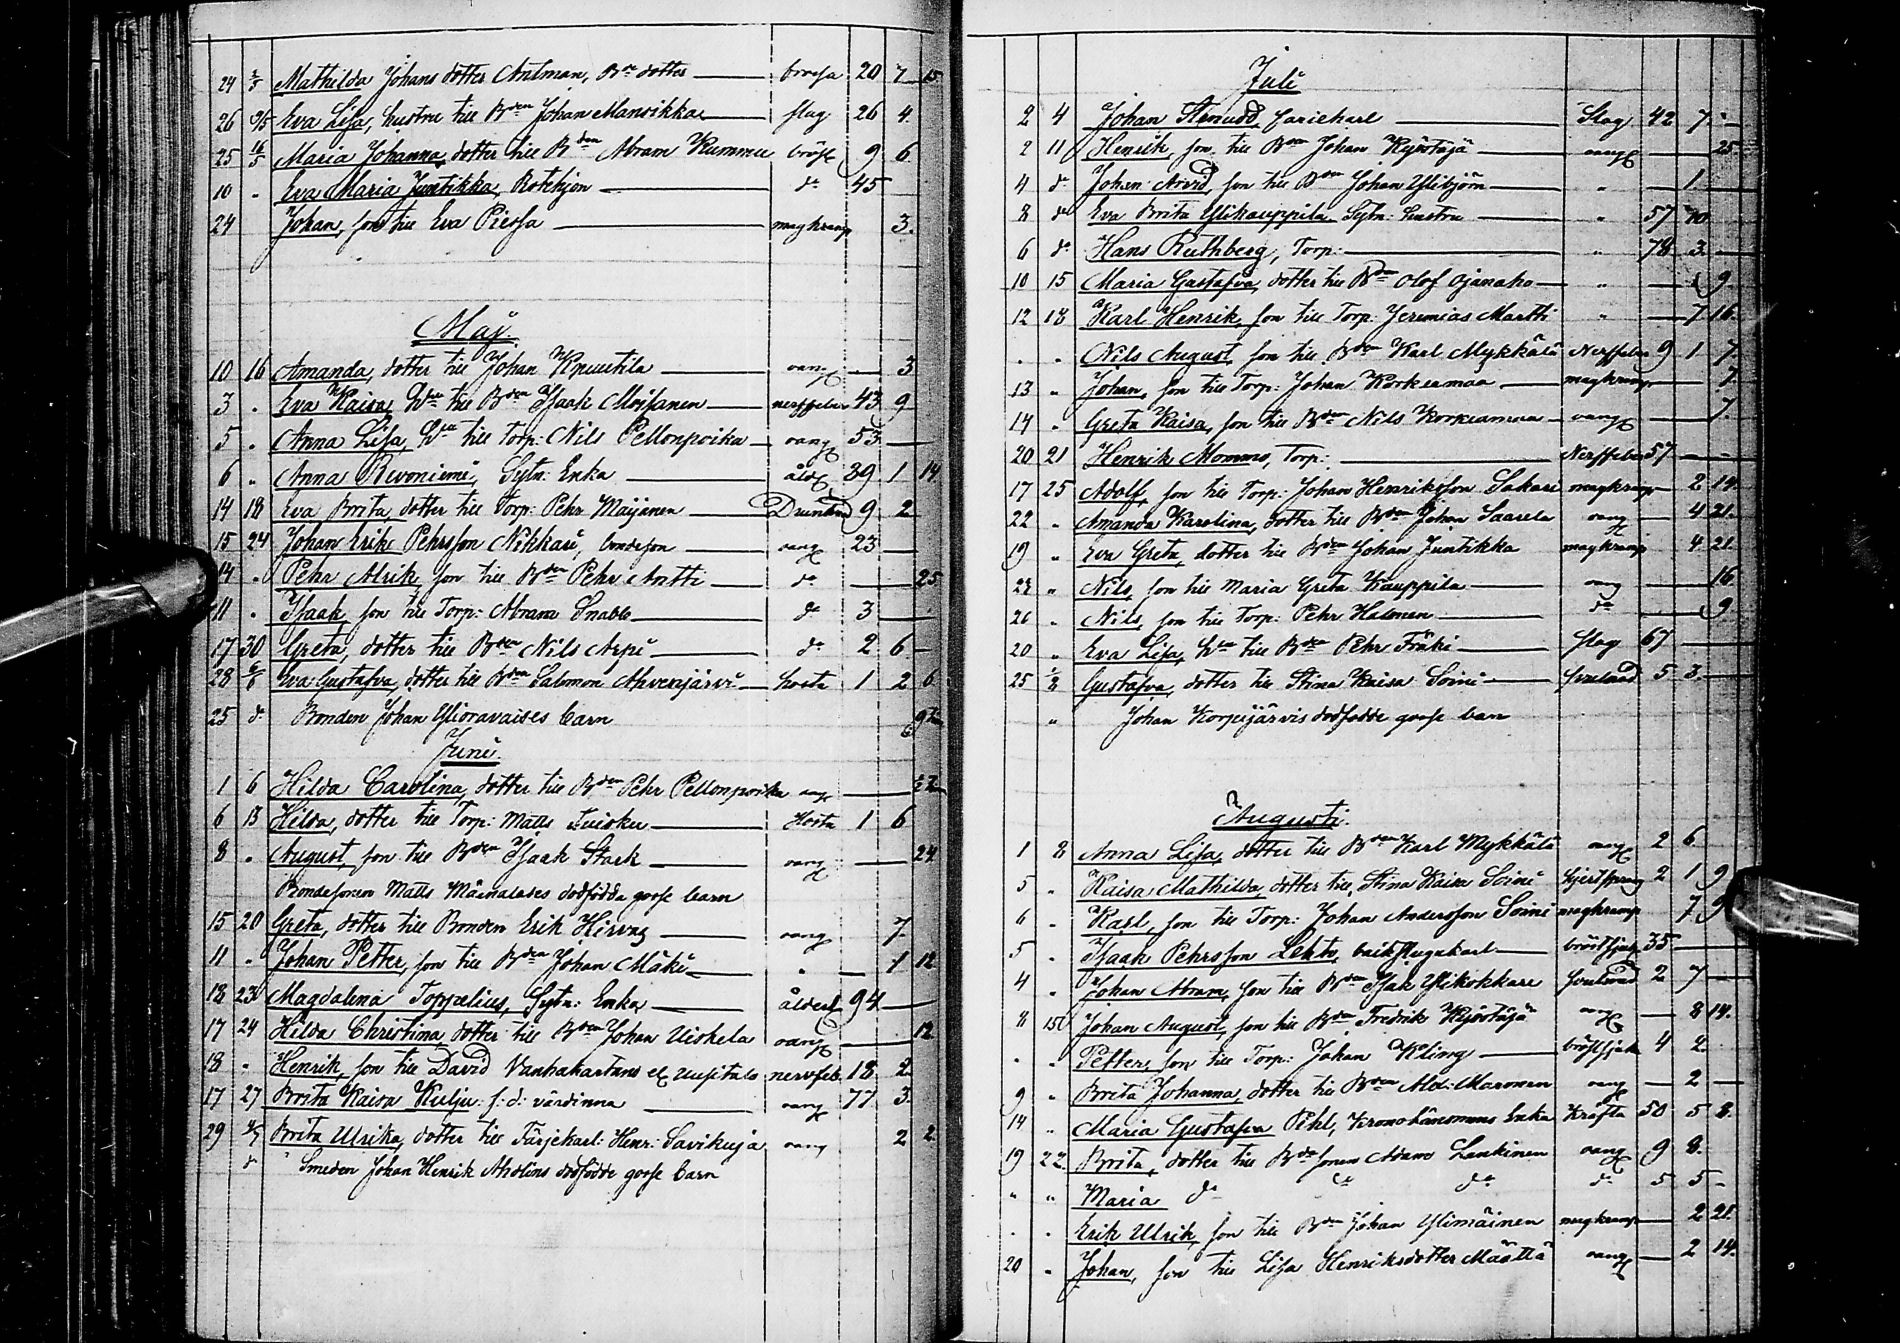 24 2/5 Mathilda Johans dotter Antman, Bde dotter brosa 20 7 15
26 9/5 Eva Lisa, hustru till Bden Johan Mansikka slag 26 4
25 16/5 Maria Johanna, dotter till Bden Abram Kummu bröst 9 6
10 " Eva Maria Juntikka, Rotehjon do 45
24 Johan, son till Eva Piessa magkramp 3.
Maj
10 16 Amanda, dotter till Johan Knuutila oang 3
3 " Eva Kaisa, Hru till Bden Isaak Moisanen nerffeber 43 9
5 " Anna Lisa, Hru till Torp: Nils Pellonpoika oang 53
6 " Anna Revoniemi, Sytn: Enka åld 39 1 14
14 18 Eva Brita, dotter till Torp: Pehr Maijanen Drunknad 9 2
15 24 Johan Erik Pehrsson Nikkari, bondeson oang 23
14 " Pehr Alrik, son till Bden Pehr Antti do 25
11 " Isaak, son till Torp: Abram Snabb do 3
17 30 Greta, dotter till Bden Nils Arpi do 2 6
28 6/6 Eva Gustafva, dotter till Bden Salomon Ahvenjärvi hosta 1 2 6
25 do Bonden Johan Ylioravaises barn
Juni
1 6 Hilda Carolina, dotter till Bden Pehr Pellonpoika oang
6 13 Hilda, dotter till Torp: Matts Tuisku Hosta 1 6
8 " August, son till Bden Isaak Stark oang 24
Bondesonen Matts Mäinalases dödfödda gosse barn
15 20 Greta, dotter till Bonden Erik Hirvas oang 7
11 " Johan Petter, son till Bden Johan Mäki " 1 12
18 23 Magdalina Toppelius, Sytn: Enka ålderd 94
17 24 Hilda Christina, dotter till Bden Johan Uiskela oang 12
18 " Henrik, son till David Vanhakartano el Uusitalo nervfeb. 18 2
17 27 Brita Kaisa Kulju f: d: värdinna oang 77 3
29 4/7 Brita Ulrika, dotter till Färjekarl: Henr: Savikuja oang 2 2
do Smeden Johan Henrik Aholins dödfödde gosse barn
Juli
2 4 Johan Stenudd, Färiekarl Slag 42 7
2 11 Henrik, son till Bden Johan Kyöstäjä oang 25
4 do Johan Arvid, son till Bden Johan Ylibjörn " 1
8 do Eva Brita Ylikauppila Sytn: hustru " 57 10
6 do Hans Ruthberg, Torp: " 78 3
10 15 Maria Gustafva, dotter till Bden Olof Ojanaho " 9
12 18 Karl Henrik, son till Torp: Jeremias Martti " 7 16
" " Nils August, son till Bden Karl Mykkälä Nerffeber 9 1 7
13 " Johan, son till Torp: Johan Korkeamaa magkramp 7
14 " Greta Kaisa, son till Bden Nils Korkeamaa oang 7
20 21 Henrik Mommo, Torp: Nerffeber 57
17 25 Adolf, son till Torp: Johan Henriksson Sakari magkramp 2 14
22 " Amanda Karolina, dotter till Bden Johan Saarela oang 4 21
19 " Eva Greta, dotter till Bden Johan Juntikka magkramp 4 21
23 " Nils, son till Maria Greta Kauppila oang 16
26 " Nils, son till Torp: Pehr Halonen do 9
20 " Eva Lisa, Hru till Bden Pehr Fräki slag 67
25 1/8 Gustafva, dotter till Stina Kaisa Soini svulnad 5 3
" Johan Korpijärvis dödfödde gosse barn
Augusti.
1 8 Anna Lisa, dotter till Bden Karl Mykkälä oang 2 6
5 " Kaisa Mathilda, dotter till Stina Kaisa Soini hjertsprång 2 1 9
6 " Karl, son till Torp: Johan Andersson Soini magkramp 7 9
5 " Isaak Pehrsson Lehto, bröstsjuk 35
4 " Johan Abram, son till Bden Isak Ylikokkare svulnad 2 7
8 15 Johan August, son till Bden Fredrik Kyöstäjä oang 8 14
" " Petter, son till Torp: Johan Kling bröstsjuk 4 2
9 " Brita Johanna, dotter till Bden Abd: Maronen oang 2
14 " Maria Gustafva Pihl, Kronolänsmans Enka Kräfta 50 5 8
19 22 Brita, dotter till Bdesonen Adam Lankinen oang 9 8
" " Maria do do do do 5 5
" " Erik Ulrik, son till Bden Johan Ylimäinen magkramp 2 21
20 " Johan, son till Lisa Henriksdotter Määttä oang 2 14